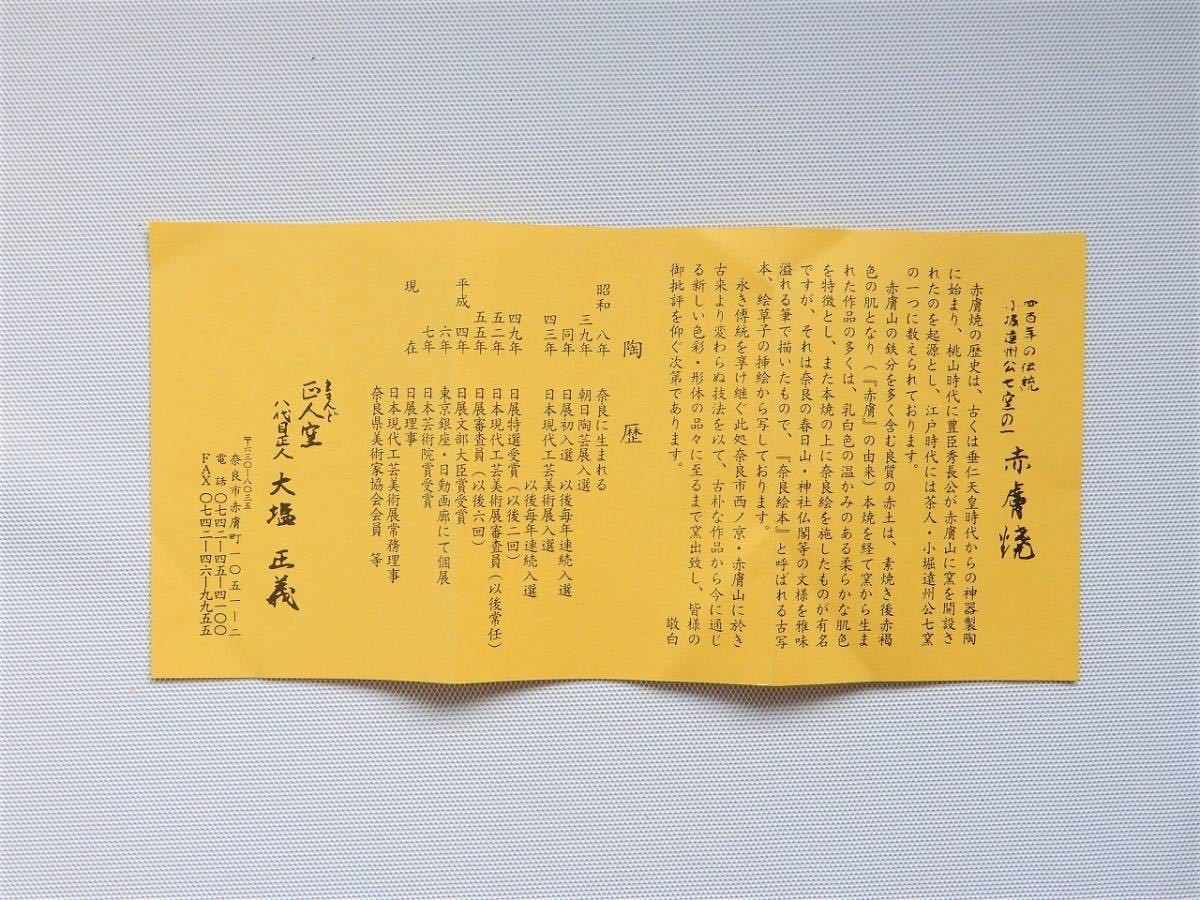 四百年の伝統
小堀遠州公七窯の一
赤膚焼
赤膚焼の歴史は、古くは垂仁天皇時代からの神器製陶
に始まり、桃山時代に豊臣秀長公が赤膚山に窯を開設さ
れたのを起源とし、江戸時代には茶人・小堀遠州公七窯
の一つに数えられております。
赤膚山の鉄分を多く含む良質の赤土は、素焼き後赤褐
色の肌となり（『赤膚』の由来）本焼を経て窯から生ま
れた作品の多くは、乳白色の温かみのある柔らかな肌色
を特徴とし、また本焼の上に奈良絵を施したものが有名
ですが、それは奈良の春日山・神社仏閣等の文様を雅味
溢れる筆で描いたもので、『奈良絵本』と呼ばれる古写
本、絵草子の挿絵から写しております。
永き傳統を享け継ぐ此処奈良市西ノ京・赤膚山に於き
古来より変わらぬ技法を以て、古朴な作品から今に通じ
る新しい色彩・形体の品々に至るまで窯出致し、皆様の
御批評を仰ぐ次第であります。
敬白
陶歴
昭和 八年 奈良に生まれる
三九年 朝日陶芸展入選
同年 日展初入選 以後毎年連続入選
四三年 日本現代工芸美術展入選
以後毎年連続入選
四九年 日展特選受賞（以後二回）
五二年 日本現代工芸美術展審査員（以後常任）
五五年 日展審査員（以後六回）
平成 四年 日展文部大臣賞受賞
六年 東京銀座・日動画廊にて個展
七年 日本芸術院賞受賞
現在 日展理事
日本現代工芸美術展常務理事
奈良県美術家協会会員 等
まさんど
正人窯
八代目正人 大塩 正義
〒六三〇－八〇三五
奈良市赤膚町一〇五一－二
電話〇七四二－四五－四一〇〇
FAX〇七四二－四六－九九五五